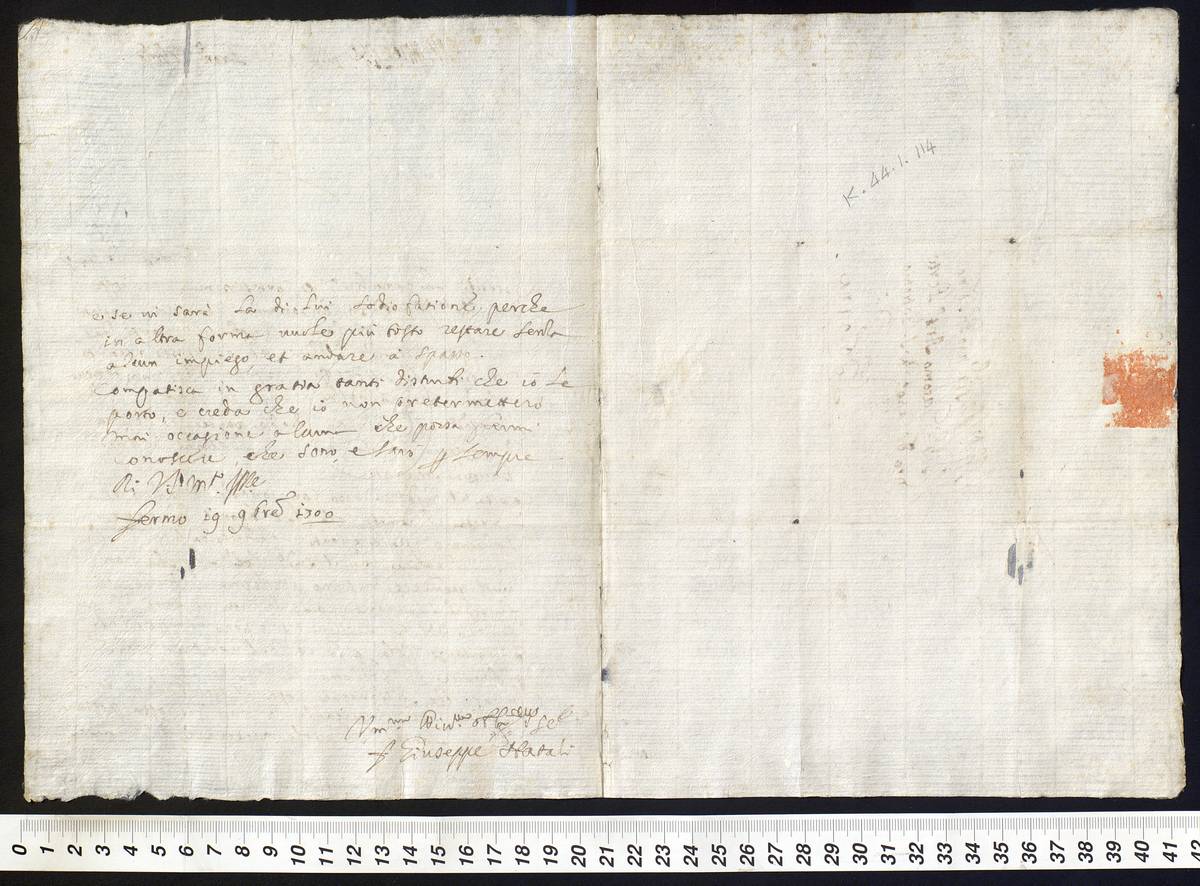 e se vi sarà la di lui sodisfatione, perche
in altra forma vuole più tosto restare senza
alcun impiego, et andare à spasso.
Compatisca in gratia tanti disturbi che io Le
porto, e creda che io non pretermetterò
mai occasione alcuna che possa farmi
conoscere, che sono, e sarò sempre
Di V.S. m.to Ill.re
Fermo 19 9bre 1700
Um.mo Div.mo
F Giuseppe Natali
K.44.1.114
0 1 2 3 4 5 6 7 8 9 10 11 12 13 14 15 16 17 18 19 20 21 22 23 24 25 26 27 28 29 30 31 32 33 34 35 36 37 38 39 40 41 42